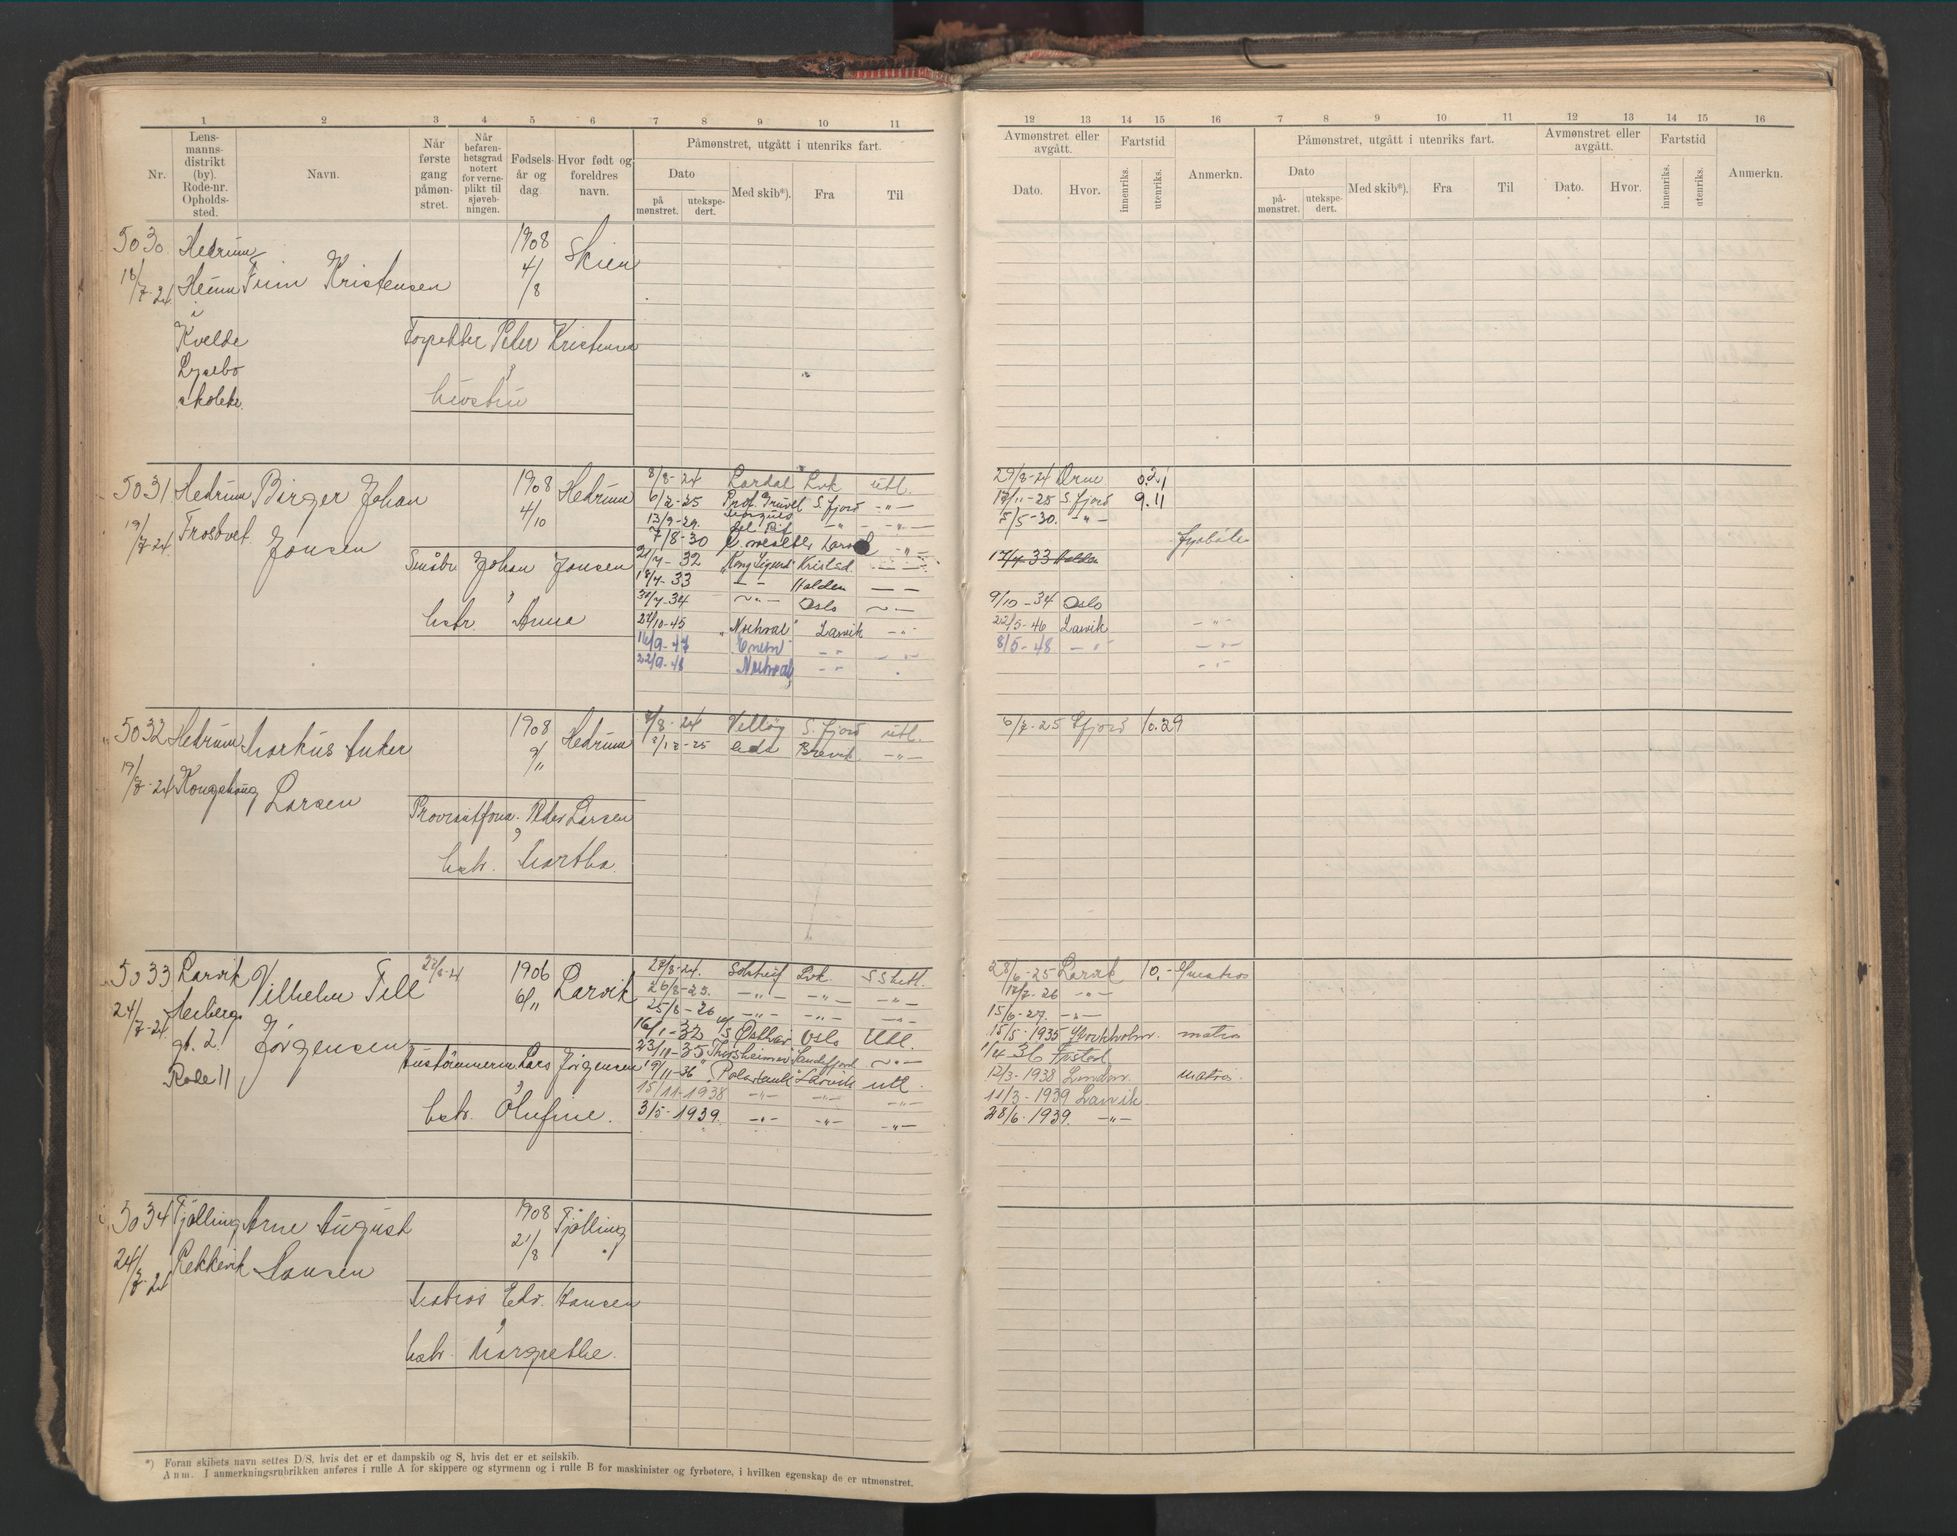 1 2 3 4 5 6 7 8 9 10 11
Nr.
Lens-
manns-
distrikt
(by).
Rode-nr.
Opholds-
sted.
Navn.
Når
første
gang
påmøn-
stret.
Når
befaren-
hetsgrad
notert
for verne-
plikt til
sjøveb-
ningen.
Fødsels-
år og
dag.
Hvor født og
foreldres
navn.
Påmønstret, utgått i utenriks fart.
Dato
på
mønstret.
utekspe-
dert.
Med skib*).
Fra
Til
12 13 14 15 16 7 8 9 10 11 12 13 14 15 16
Avmønstret eller
avgått.
Dato.
Hvor.
Fartstid
innenriks.
utenriks.
Anmerkn.
Påmønstret, utgått i utenriks fart.
Dato
på-
mønstret.
utekspe-
dert.
Med skib*).
Fra
Til
Avmønstret eller
avgått.
Dato.
Hvor.
Fartstid
innenriks.
utenriks.
Anmerkn.
5030 Hedrum
18/7-24
i
Kvelde
Finn Kristensen
1908
4/8
Skien
Peter Kristensen
5031 Hedrum Birger Johan
19/7-24
Jonsen
1908
4/10
Hedrum
Johan Jonsen
hstr. Anna
8/8-24 Lardal Lvk utl. 29/8-24 Orne 0.21
6/2-25 S. fjord -"- 17/11-25 S. fjord 9.11
13/9-29 -"- -"- 5/5-30. -"-
7/8-30 Larvik -"-
21/7-32 "Kong Sigurd" Kristsd. -"- 17/7-33 Halden
18/7-33 -"- Halden -"-
30/7-34 -"- Oslo -"- 9/10-34 Oslo
27/10-45 "Nordhval" Larvik -"- 22/5-46 Larvik -"-
16/9-47 -"- -"- 8/5-48 -"- -"-
22/9-48 -"- -"-
5032 Hedrum Markus Anker
19/7-24 Larsen
1908
9/11
Hedrum
Peder Larsen
hstr. Martha.
8/8-24 S. fjord utl. 6/7-25 Sfjord 10.29
Brevik -"-
5033 Larvik Vilhelm Tell
24/7-24
gt. 2.
Rode 11
Jørgensen
1906
6/11
Larvik
Lars Jørgensen
hstr. Olufine.
27/8-24. Solstreif Lvk 28/6-25 Larvik 10.-
26/8-25. -"- -"- -"- 17/7-26 -"-
25/8-26 -"- -"- -"- 15/6-27. -"-
16/1-32 Oslo Utl. 15/5-1935 Stockholm. matros
23/10-35 "Thorsheimer" Sandefjord -"- 1/4 36
19/11-36 "Polartank" Larvik utl. 12/3-1938 London. matros.
15/11-1938 -"- -"- -"- 11/3-1939 Larvik.
3/5-1939. -"- -"- -"- 28/6-1939. -"-
5034 Tjølling Arne August
24/7-24 Rekkevik Hansen
1908
21/8
Tjølling
Matros Edv. Hansen
hstr. Margrethe.
*) Foran skibets navn settes D/S, hvis det er et dampskib og S, hvis det er et seilskib.
Anm. I anmerkningsrubrikken anføres i rulle A for skippere og styrmenn og i rulle B for maskinister og fyrbøtere, i hvilken egenskap de er utmønstret.